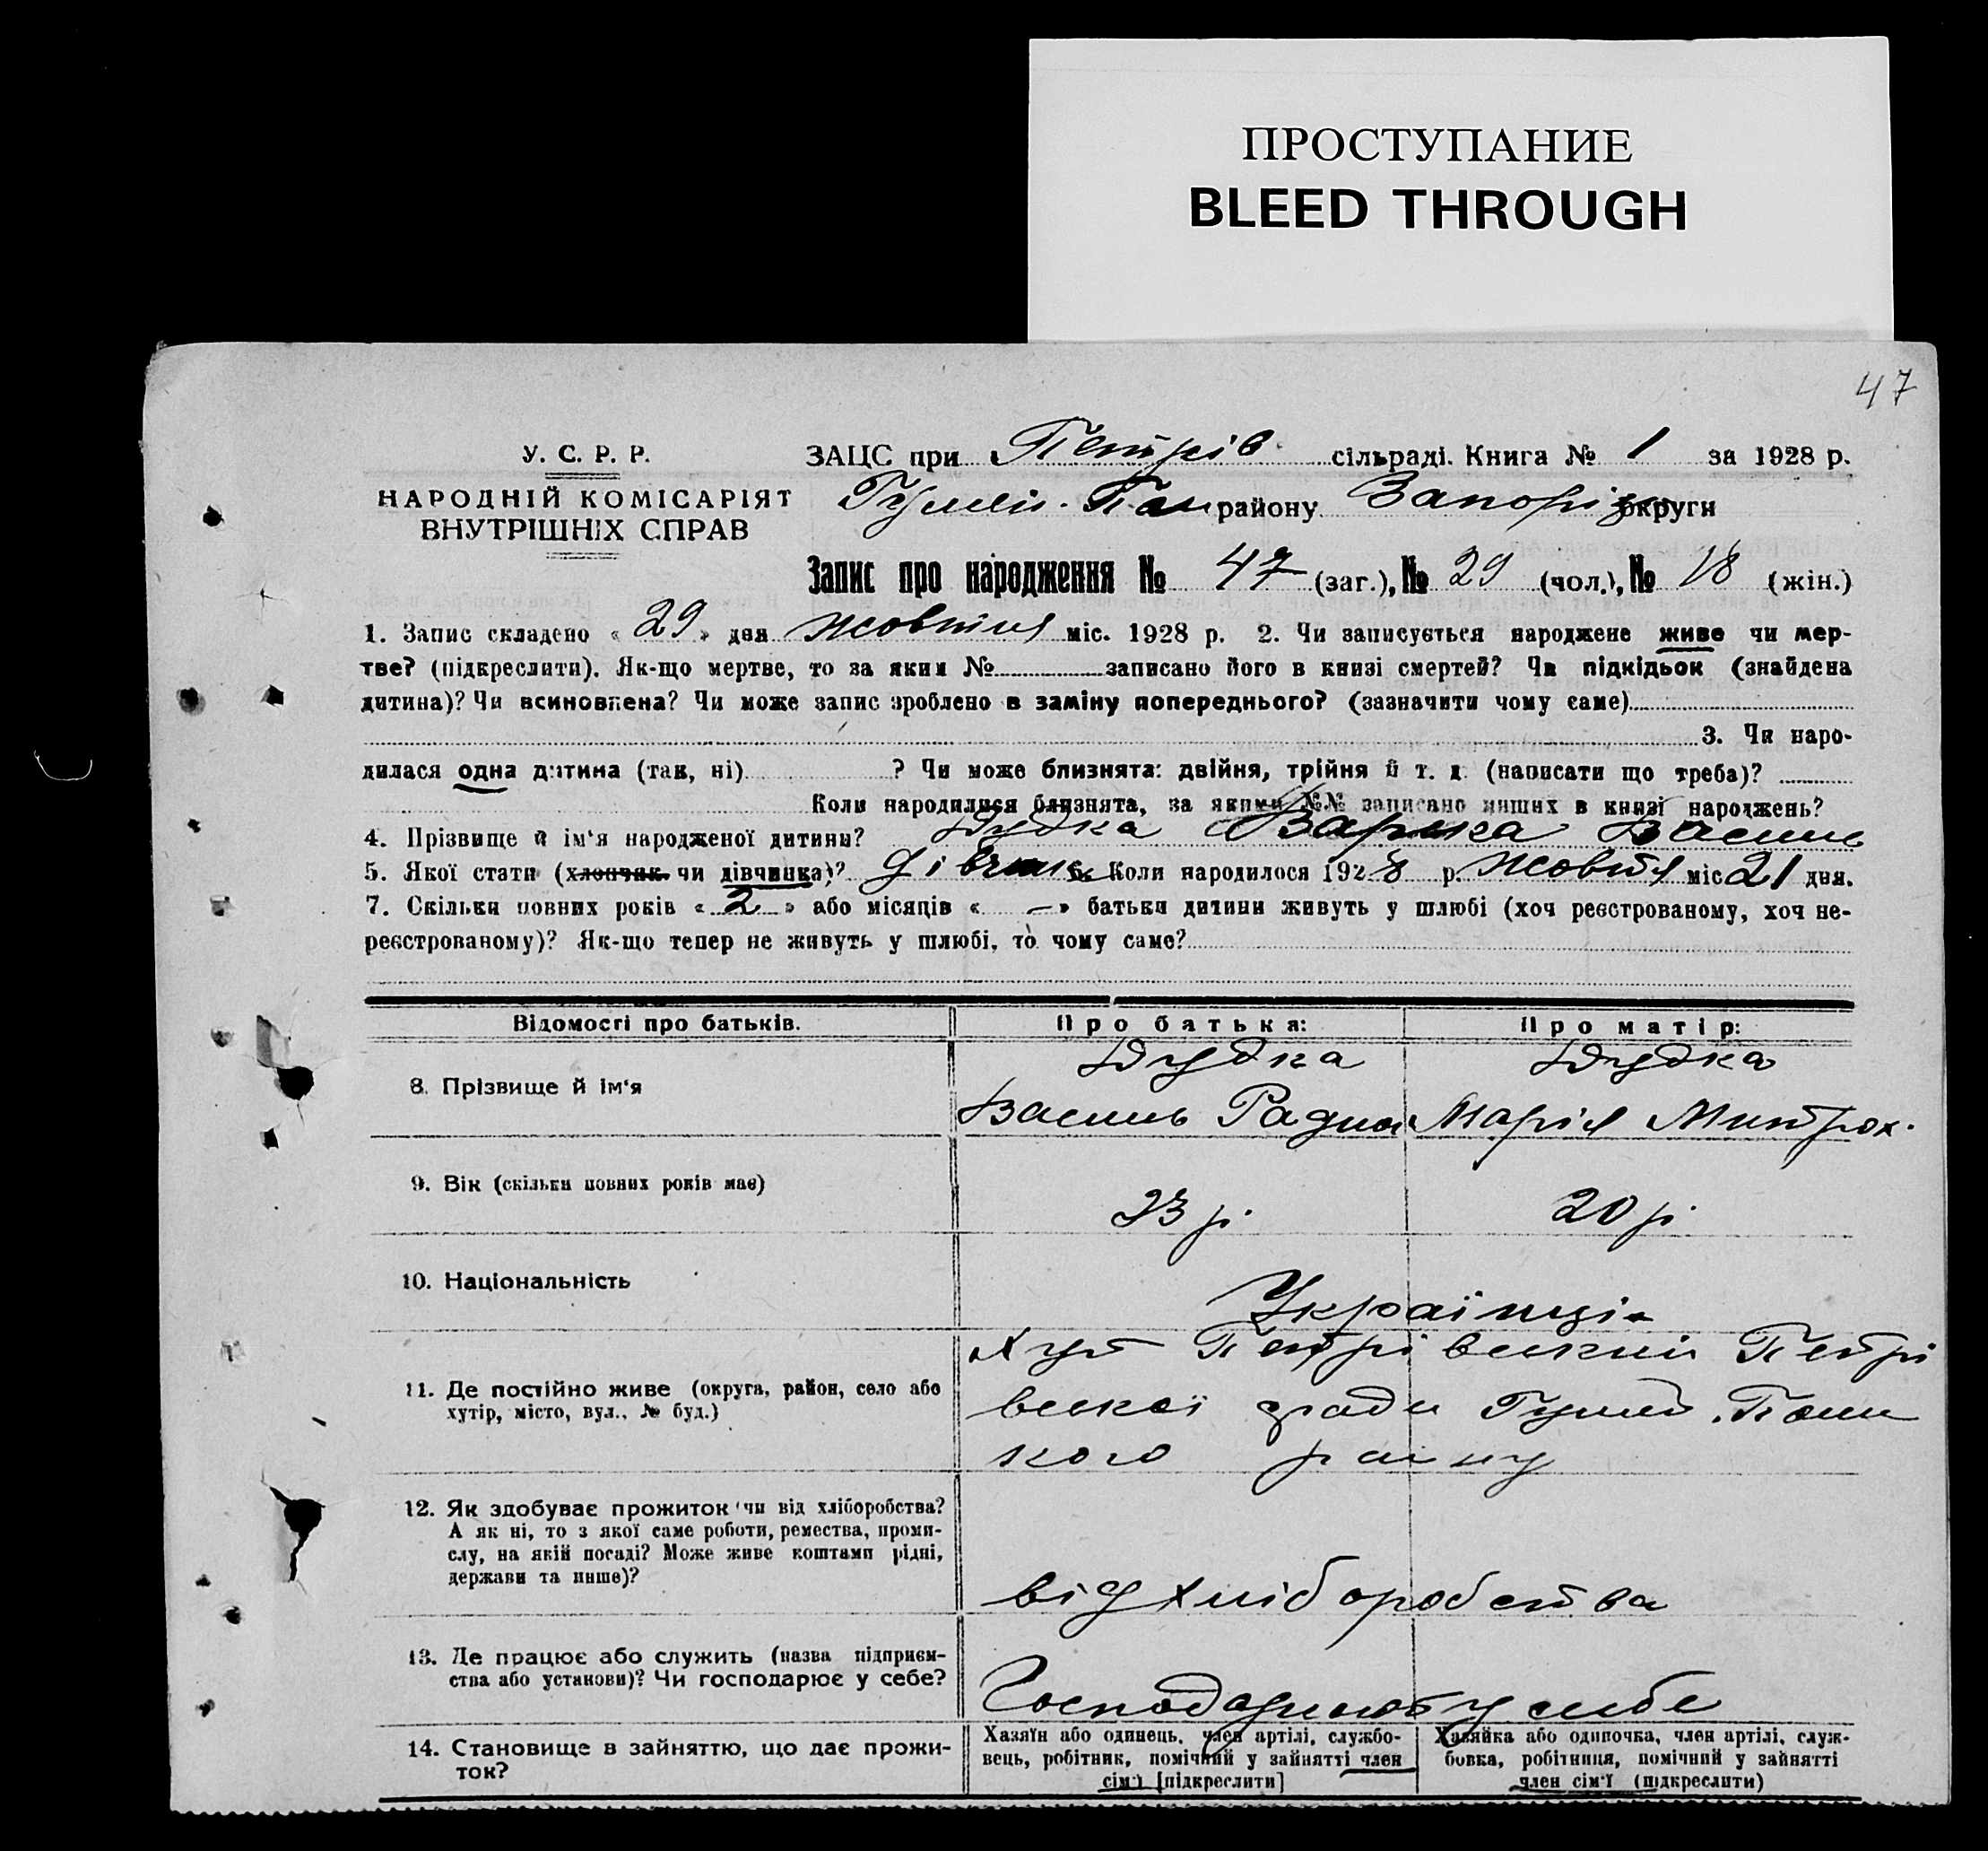 ПРОСТУПАНИЕ
BLEED THROUGH
47
У. С. Р. Р.
НАРОДНІЙ КОМІСАРІЯТ
ВНУТРІШНІХ СПРАВ
ЗАЦС при Петрів сільраді. Книга № 1 за 1928 р.
Гуляй-Пол району Запоріз округи
Запис про народження № 47 (заг.), № 29 (чол.), № 18 (жін.)
1. Запис складено « 29 » дня жовтня міс. 1928 р. 2. Чи записується народжене живе чи мер-
тве? (підкреслити). Як-що мертве, то за яким № записано його в книзі смертей? Чи підкідьок (знайдена
дитина)? Чи всиновлена? Чи може запис зроблено в заміну попереднього? (зазначити чому саме)
3. Чи наро-
дилася одна дитина (так, ні) ? Чи може близнята: двійня, трійня й т. д. (написати що треба)?
Коли народилися близнята, за якими №№ записано инших в книзі народжень?
4. Прізвище й ім'я народженої дитини? Дудка Варька Василь
5. Якої стати (хлопчик чи дівчинка)? Дівчинк 6. Коли народилося 1928 р. Жовтя міс 21 дня.
7. Скільки повних років « 2 » або місяців « — » батьки дитини живуть у шлюбі (хоч реєстрованому, хоч не-
реєстрованому)? Як-що тепер не живуть у шлюбі, то чому саме?
Відомості про батьків. Про батька: Про матір:
8. Прізвище й ім'я
Дудка
Василь
Дудка
Марія Митрох.
9. Вік (скільки повних років має)
23 р
20 р
10. Національність
Українці
11. Де постійно живе (округа, район, село або
хутір, місто, вул., № буд.)
Хут Петрівський Петрі
вської ради Гуляй. Поли
кого району
12. Як здобуває прожиток чи від хліборобства?
А як ні, то з якої саме роботи, ремества, проми-
слу, на якій посаді? Може живе коштами рідні,
держави та инше)?
від хліборобства
13. Де працює або служить (назва підприєм-
ства або установи)? Чи господарює у себе?
Господарюють у себе
14. Становище в зайняттю, що дає прожи-
ток?
Хазяїн або одинець, член артілі, службо-
вець, робітник, помічний у зайнятті член
сім'ї [підкреслити]
Хазяйка або одиночка, член артілі, служ-
бовка, робітниця, помічний у зайнятті
член сім'ї (підкреслити)